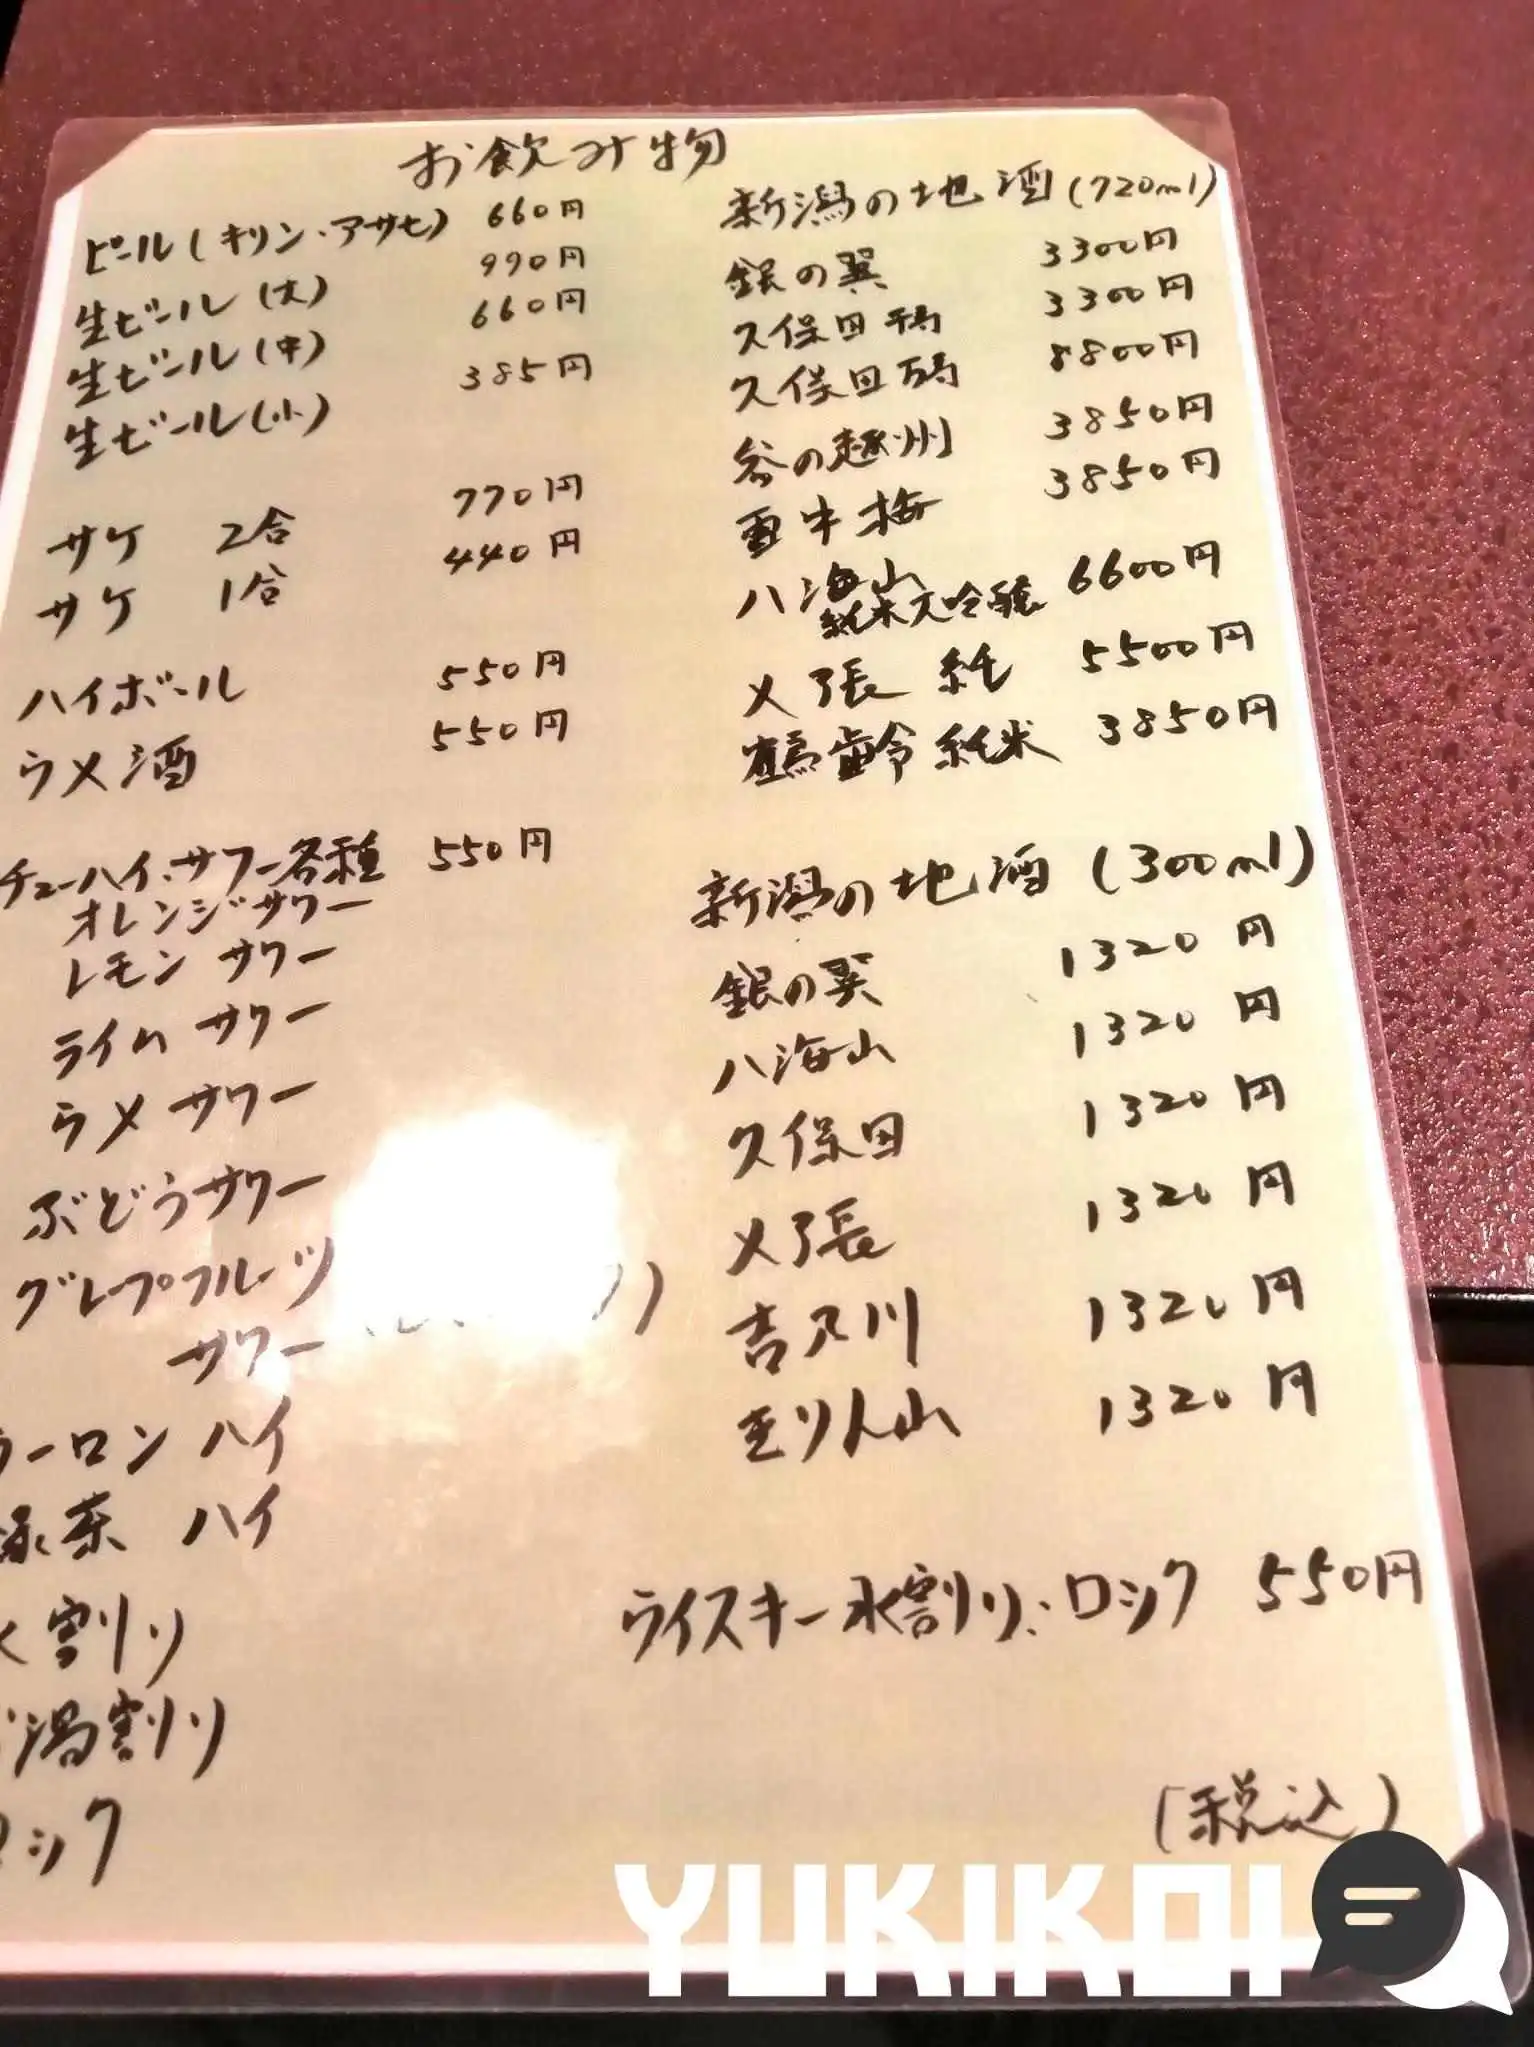 お飲み物
ビール(キリン・アサヒ) 660円
生ビール(大) 990円
生ビール(中) 660円
生ビール(小) 385円
サケ 2合 770円
サケ 1合 440円
ハイボール 550円
ウメ酒 550円
チューハイ、サワー各種 550円
オレンジサワー
レモン サワー
ライム サワー
ウメ サワー
ぶどうサワー
グレープフルーツ
サワー
ウーロン ハイ
緑茶 ハイ
水割り
お湯割り
ロック
新潟の地酒(720ml)
銀の翼 3300円
久保田 千寿 3300円
久保田 萬寿 8800円
谷の越州 3850円
雪中梅 3850円
八海山
純米大吟醸 6600円
〆張 純 5500円
鶴齢 純米 3850円
新潟の地酒(300ml)
銀の翼 1320円
八海山 1320円
久保田 1320円
〆張 1320円
吉乃川 1320円
玉りん山 1320円
ウイスキー水割り、ロック 550円
(税込)
YUKIKOI